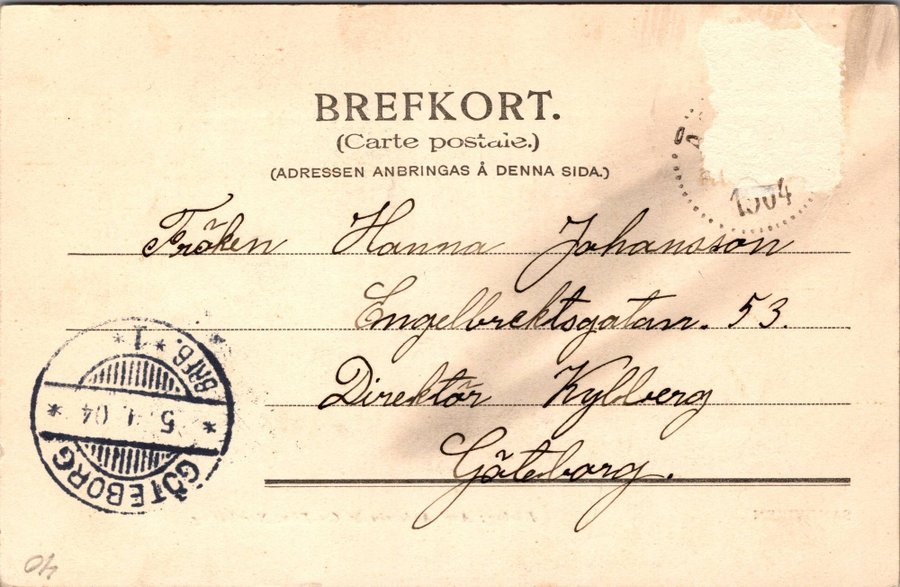 BREFKORT.
(Carte postale.)
(ADRESSEN ANBRINGAS Å DENNA SIDA.)
1904
Fröken Hanna Johansson
Engelbrektsgatan. 53.
Direktör Kylberg
Göteborg.
GÖTEBORG
* 5. 1. 04 *
* 1 * BRFB.
40